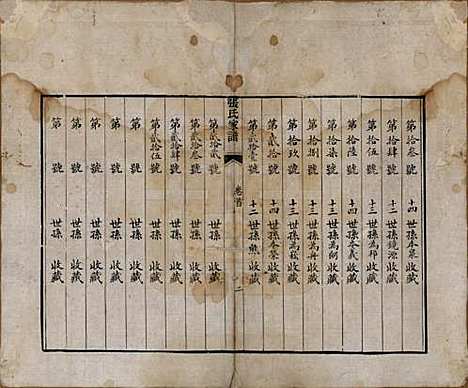 第拾叁號 十四世孫本 收藏
第拾肆號 十二世孫鏡源收藏
第拾伍號 十三世孫為邦收藏
第拾陸號 十四世孫本義收藏
第拾柒號 十三世孫為 收藏
第拾捌號 十三世孫為冉收藏
第拾玖號 十三世孫為 收藏
第貳拾號 十四世孫本榮收藏
第貳拾壹號 十二世孫 收藏
張氏家譜
卷首
二
第貳拾貳號 世孫 收藏
第貳拾叁號 世孫 收藏
第貳拾肆號 世孫 收藏
第貳拾伍號 世孫 收藏
第 號 世孫 收藏
第 號 世孫 收藏
第 號 世孫 收藏
第 號 世孫 收藏